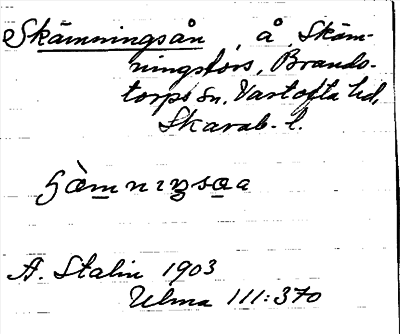 Skämningsån, å, Skäm-
ningsfors, Brands-
torps sn, Vartofta hd,
Skarab. l.
A. Stalin 1903
Ulma 111:370